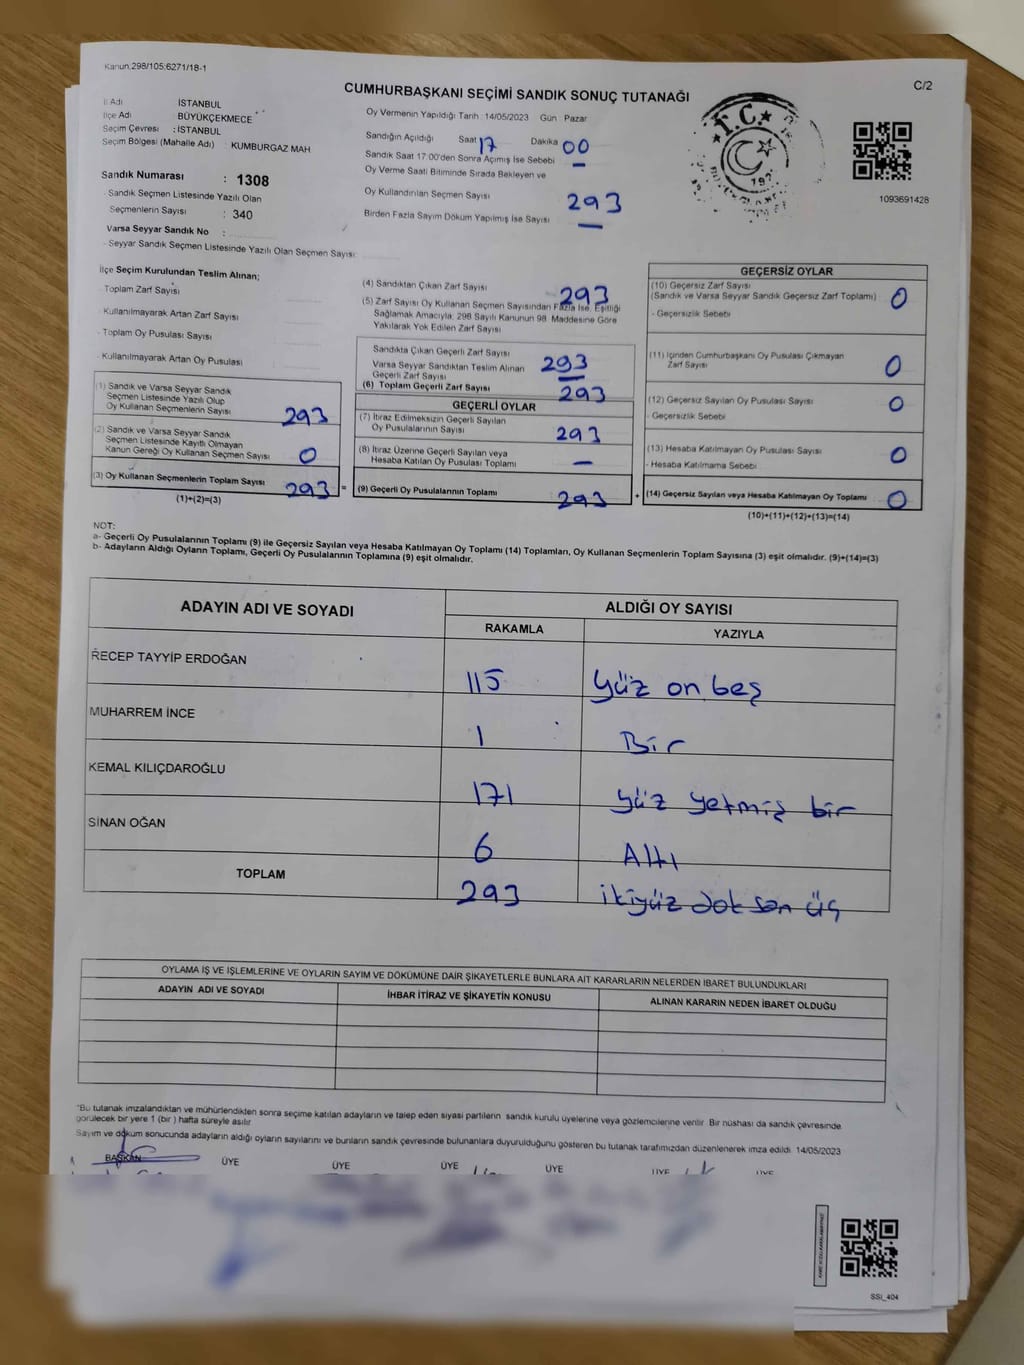 Kanun.298/105;6271/18-1
C/2
CUMHURBAŞKANI SEÇİMİ SANDIK SONUÇ TUTANAĞI
İl Adı İSTANBUL
İlçe Adı BÜYÜKÇEKMECE
Seçim Çevresi : İSTANBUL
Seçim Bölgesi (Mahalle Adı) : KUMBURGAZ MAH
Sandık Numarası : 1308
- Sandık Seçmen Listesinde Yazılı Olan
Seçmenlerin Sayısı : 340
Varsa Seyyar Sandık No :
- Seyyar Sandık Seçmen Listesinde Yazılı Olan Seçmen Sayısı:
Oy Vermenin Yapıldığı Tarih :14/05/2023 Gün : Pazar
Sandığın Açıldığı Saat 17 Dakika 00
Sandık Saat 17:00'den Sonra Açılmış İse Sebebi –
Oy Verme Saati Bitiminde Sırada Bekleyen ve
Oy Kullandırılan Seçmen Sayısı 293
Birden Fazla Sayım Döküm Yapılmış İse Sayısı –
T.C.
1093691428
İlçe Seçim Kurulundan Teslim Alınan;
- Toplam Zarf Sayısı
- Kullanılmayarak Artan Zarf Sayısı
- Toplam Oy Pusulası Sayısı
- Kullanılmayarak Artan Oy Pusulası
(1) Sandık ve Varsa Seyyar Sandık
Seçmen Listesinde Yazılı Olup
Oy Kullanan Seçmenlerin Sayısı 293
(2) Sandık ve Varsa Seyyar Sandık
Seçmen Listesinde Kayıtlı Olmayan
Kanun Gereği Oy Kullanan Seçmen Sayısı 0
(3) Oy Kullanan Seçmenlerin Toplam Sayısı 293 =
(1)+(2)=(3)
(4) Sandıktan Çıkan Zarf Sayısı 293
(5) Zarf Sayısı Oy Kullanan Seçmen Sayısından Fazla İse, Eşitliği
Sağlamak Amacıyla; 298 Sayılı Kanunun 98. Maddesine Göre
Yakılarak Yok Edilen Zarf Sayısı
Sandıkta Çıkan Geçerli Zarf Sayısı 293
Varsa Seyyar Sandıktan Teslim Alınan
Geçerli Zarf Sayısı –
(6) Toplam Geçerli Zarf Sayısı 293
GEÇERLİ OYLAR
(7) İtiraz Edilmeksizin Geçerli Sayılan
Oy Pusulalarının Sayısı 293
(8) İtiraz Üzerine Geçerli Sayılan veya
Hesaba Katılan Oy Pusulası Toplamı –
(9) Geçerli Oy Pusulalarının Toplamı 293 +
GEÇERSİZ OYLAR
(10) Geçersiz Zarf Sayısı
(Sandık ve Varsa Seyyar Sandık Geçersiz Zarf Toplamı) 0
- Geçersizlik Sebebi
(11) İçinden Cumhurbaşkanı Oy Pusulası Çıkmayan
Zarf Sayısı 0
(12) Geçersiz Sayılan Oy Pusulası Sayısı 0
- Geçersizlik Sebebi
(13) Hesaba Katılmayan Oy Pusulası Sayısı 0
- Hesaba Katılmama Sebebi
(14) Geçersiz Sayılan veya Hesaba Katılmayan Oy Toplamı 0
(10)+(11)+(12)+(13)=(14)
NOT:
a- Geçerli Oy Pusulalarının Toplamı (9) ile Geçersiz Sayılan veya Hesaba Katılmayan Oy Toplamı (14) Toplamları, Oy Kullanan Seçmenlerin Toplam Sayısına (3) eşit olmalıdır. (9)+(14)=(3)
b- Adayların Aldığı Oyların Toplamı, Geçerli Oy Pusulalarının Toplamına (9) eşit olmalıdır.
ADAYIN ADI VE SOYADI ALDIĞI OY SAYISI
RAKAMLA YAZIYLA
RECEP TAYYİP ERDOĞAN 115 yüz on beş
MUHARREM İNCE 1 Bir
KEMAL KILIÇDAROĞLU 171 yüz yetmiş bir
SİNAN OĞAN 6 Altı
TOPLAM 293 ikiyüz doksan üç
OYLAMA İŞ VE İŞLEMLERİNE VE OYLARIN SAYIM VE DÖKÜMÜNE DAİR ŞİKAYETLERLE BUNLARA AİT KARARLARIN NELERDEN İBARET BULUNDUKLARI
ADAYIN ADI VE SOYADI İHBAR İTİRAZ VE ŞİKAYETİN KONUSU ALINAN KARARIN NEDEN İBARET OLDUĞU
*Bu tutanak imzalandıktan ve mühürlendikten sonra seçime katılan adayların ve talep eden siyasi partilerin sandık kurulu üyelerine veya gözlemcilerine verilir. Bir nüshası da sandık çevresinde
görülecek bir yere 1 (bir ) hafta süreyle asılır
Sayım ve döküm sonucunda adayların aldığı oyların sayılarını ve bunların sandık çevresinde bulunanlara duyurulduğunu gösteren bu tutanak tarafımızdan düzenlenerek imza edildi. 14/05/2023
BAŞKAN ÜYE ÜYE ÜYE ÜYE ÜYE ÜYE
SSI_404